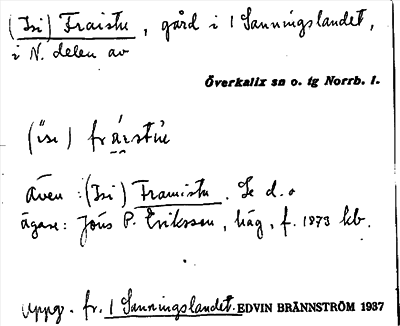 (Isi) Fraistu, gård i 1 Sanningslandet,
i N. delen av
Överkalix sn o. tg Norrb. l.
även : (Isi) Framistu. Se d. o
ägare: Jöns P. Eriksson, häg, f. 1873 kb.
uppg. fr. 1 Sanningslandet. EDVIN BRÄNNSTRÖM 1937